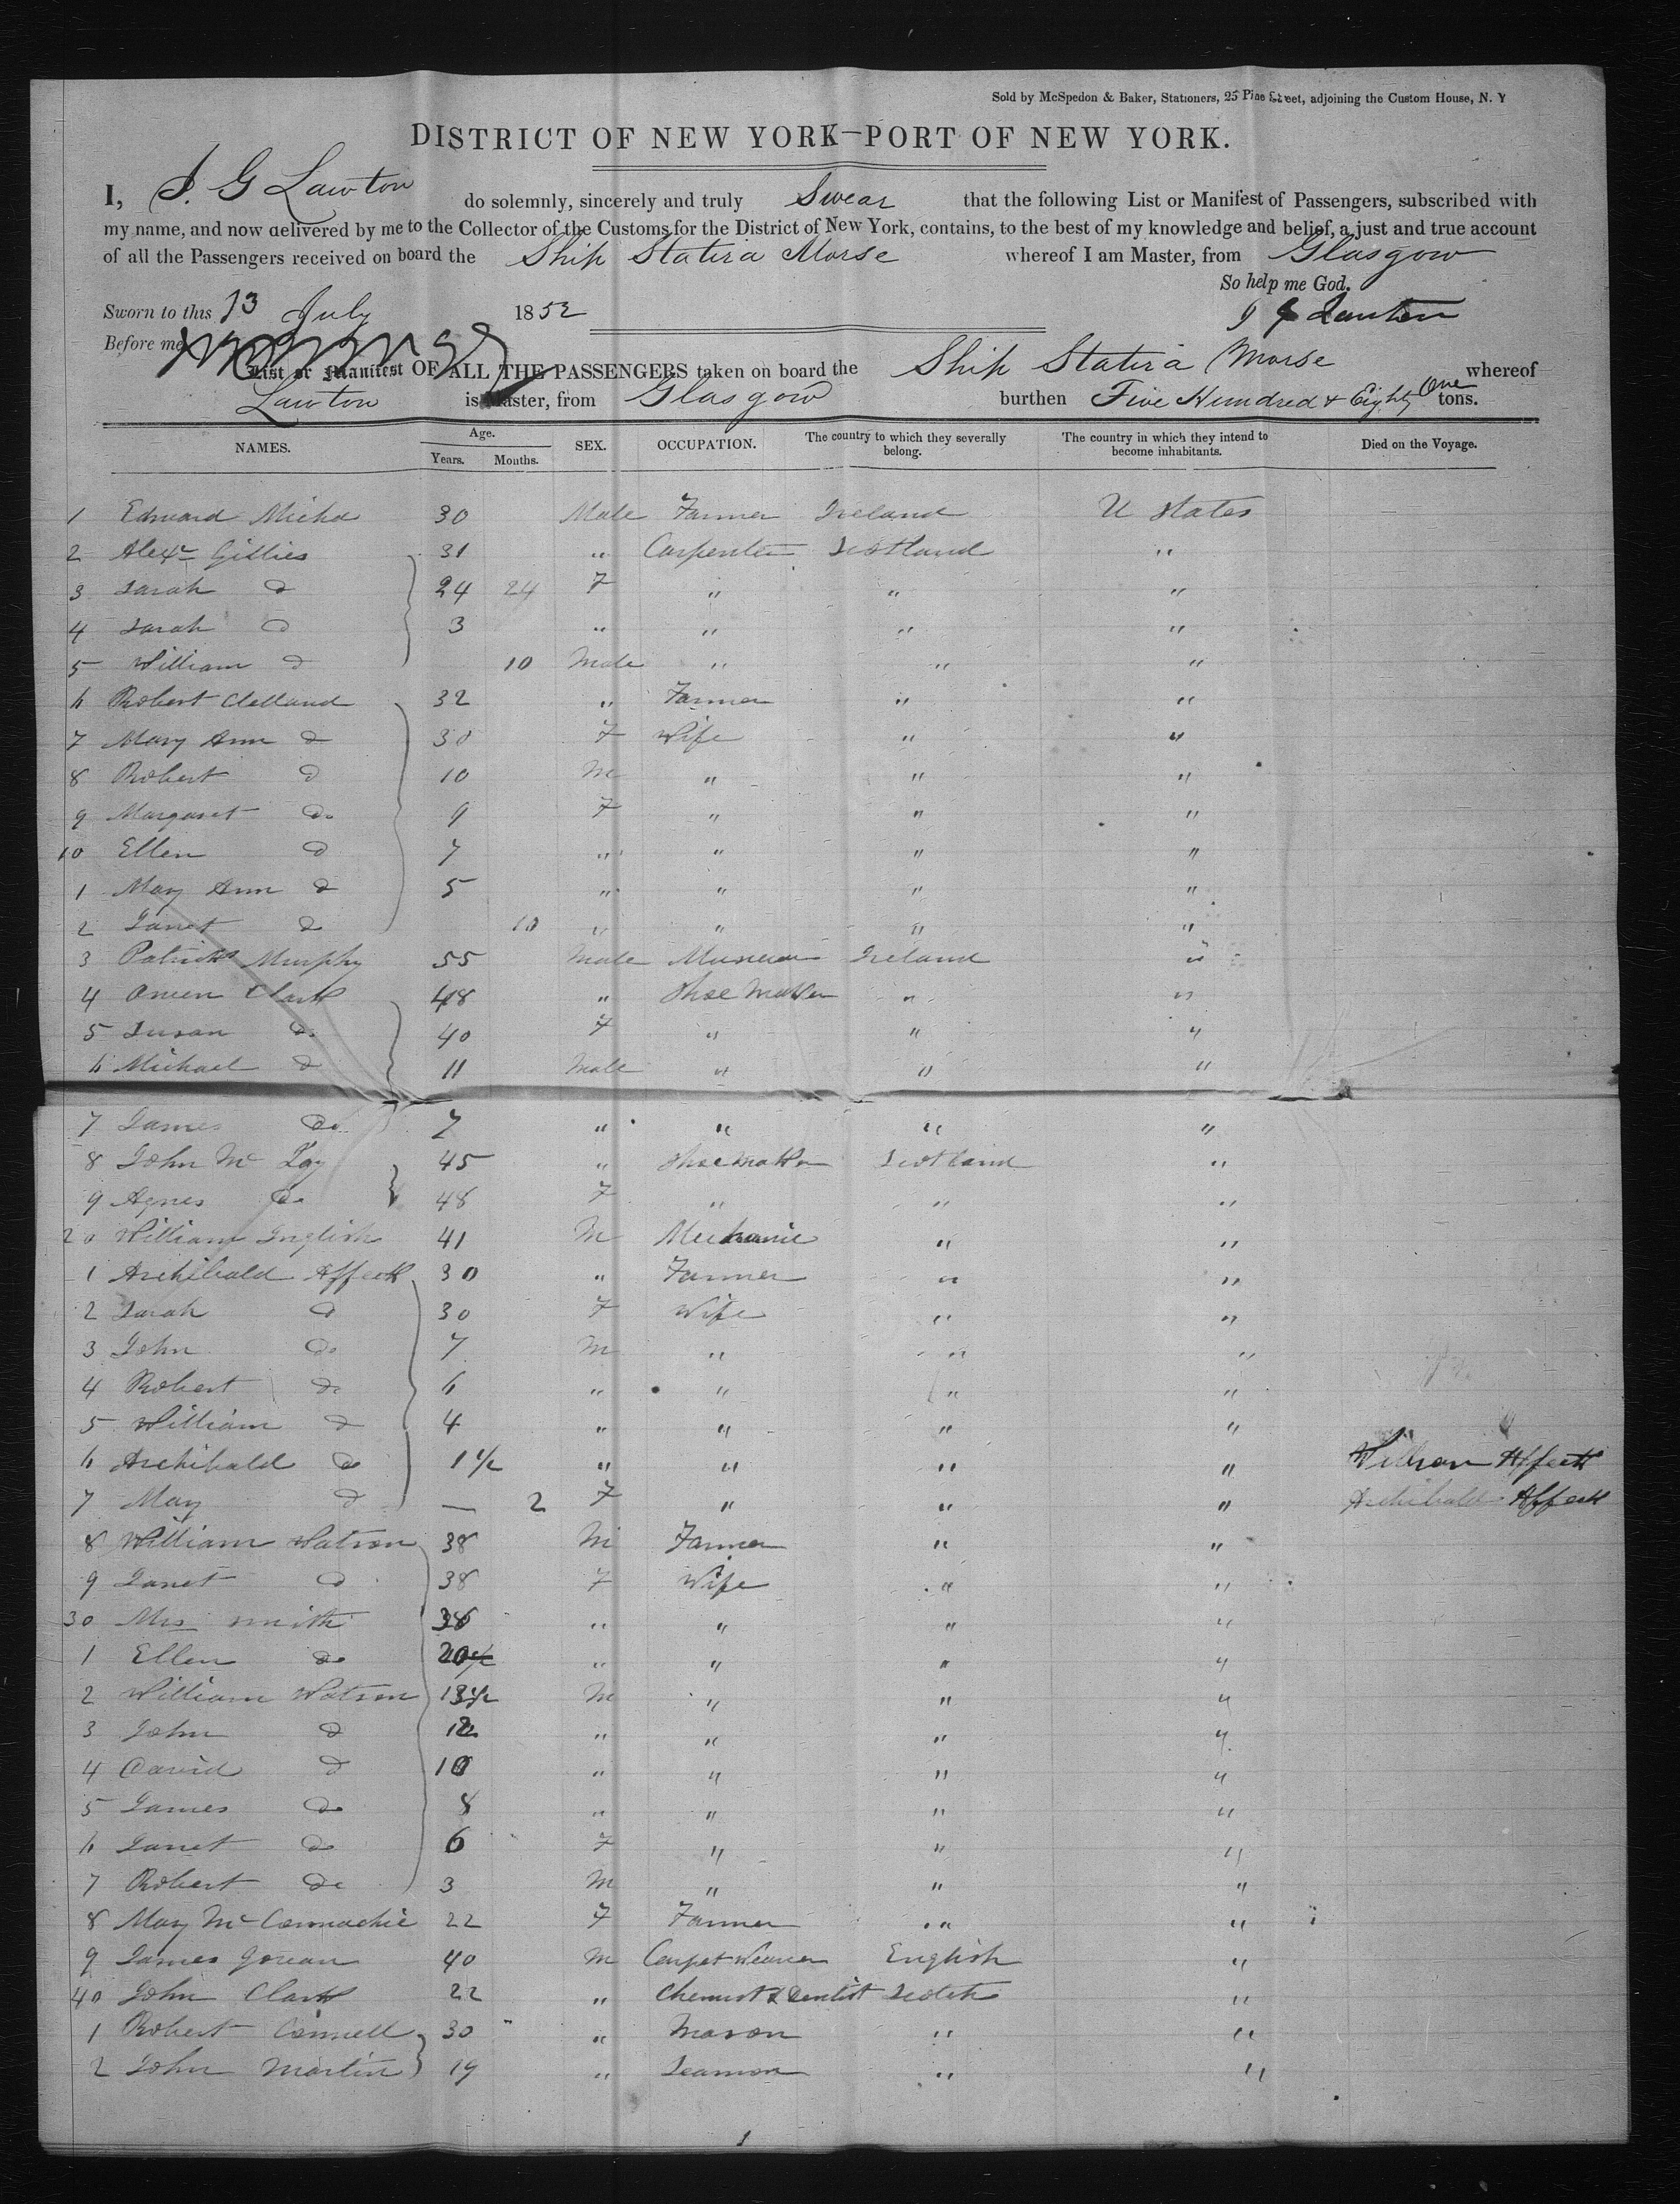 Sold by McSpedon & Baker, Stationers, 25 Pine Street, adjoining the Custom House, N. Y
DISTRICT OF NEW YORK—PORT OF NEW YORK.
I, J. G Lawton do solemnly, sincerely and truly Swear that the following List or Manifest of Passengers, subscribed with
my name, and now delivered by me to the Collector of the Customs for the District of New York, contains, to the best of my knowledge and belief, a just and true account
of all the Passengers received on board the Ship Statira Morse whereof I am Master, from Glasgow
So help me God.
Sworn to this 13 July 1852 J G Lawton
Before me
List or Manifest OF ALL THE PASSENGERS taken on board the Ship Statira Morse whereof
Lawton is Master, from Glasgow burthen Five Hundred & Eighty One tons.
NAMES. Age. Years. Months. SEX. OCCUPATION. The country to which they severally belong. The country in which they intend to become inhabitants. Died on the Voyage.
1 Edward 30 Male Farmer Ireland U States
2 Alexr Gillies 31 " Carpenter Scotland "
3 Sarah Do 24 24 F " " "
4 Sarah Do 3 " " " "
5 William Do 10 Male " " "
6 Robert Clelland 32 " Farmer " "
7 Mary Ann Do 30 F Wife " "
8 Robert Do 10 M " " "
9 Margaret Do 9 F " " "
10 Ellen Do 7 " " " "
1 Mary Ann Do 5 " " " "
2 Janet Do 10 " " " "
3 Patrick Murphy 55 Male Ireland "
4 Owen Clark 48 " Shoe Maker " "
5 Susan Do 40 F " " "
6 Michael Do 11 Male " " "
7 James Do 7 " " " "
8 John Mc Kay 45 " Shoemaker Scotland "
9 Agnes Do 48 F " " "
20 William Inglish 41 M Mechanic " "
1 Archibald Affeck 30 " Farmer " "
2 Sarah Do 30 F Wife " "
3 John Do 7 M " " "
4 Robert Do 6 " " " "
5 William Do 4 " " " "
6 Archibald Do 1 1/2 " " " " William Affeck
7 May Do — 2 F " " " Archibald Affeck
8 William Watson 38 M Farmer " "
9 Janet Do 38 F Wife " "
30 Mrs Smith 36 " " " "
1 Ellen Do 20 " " " "
2 William Watson 13 1/2 M " " "
3 John Do 12 " " " "
4 David Do 10 " " " "
5 James Do 8 " " " "
6 Janet Do 6 F " " "
7 Robert Do 3 M " " "
8 May McConnachie 22 F Farmer " "
9 James 40 M Carpet Weaver English "
40 John Clark 22 " Chemist & Dentist Scotch "
1 Robert Connell 30 " " Mason " "
2 John Martin 19 " Seamon " "
1